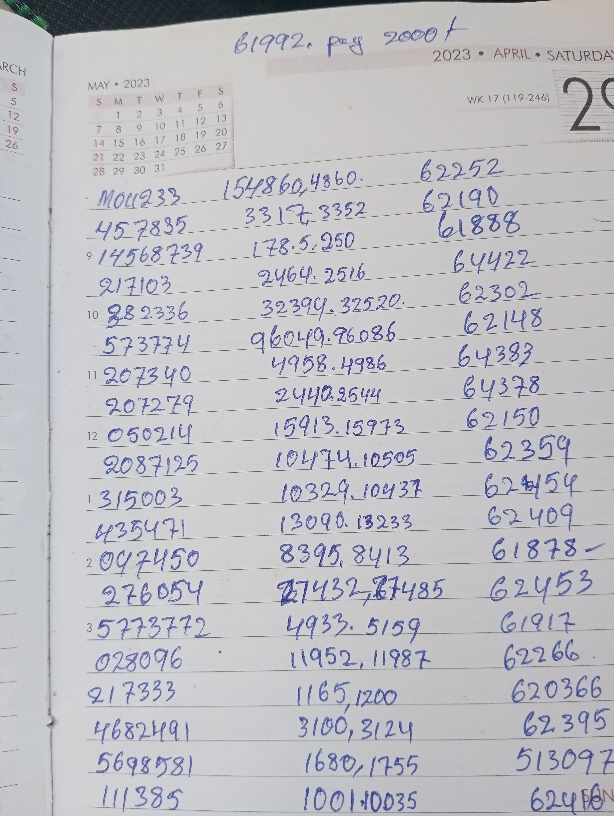 61992. pay 2000/
2023 • APRIL • SATURDAY
ARCH
S
5
12
19
26
MAY • 2023
S M T W T F S
1 2 3 4 5 6
7 8 9 10 11 12 13
14 15 16 17 18 19 20
21 22 23 24 25 26 27
28 29 30 31
WK 17 (119-246)
29
MOU233 154860,4860. 62252
457835 3317, 3352 62190
9 14568739 178.5.250 61888
217103 2464.2516 64422
10 282336 32394.32520. 62302
573774 96049.96086 62148
11 207340 4958.4986 64383
207279 2440.2544 64378
12 050214 15913.15973 62150
2087125 10474.10505 62359
1 315003 10329.10437 62454
435471 13090.13233 62409
2 097450 8395,8413 61878 –
276054 27432,27485 62453
3 5773772 4933.5159 61917
028096 11952,11987 62266.
217333 1165,1200 620366
4682491 3100,3124 62395
5698581 1680,1755 513097
111385 10011.10035